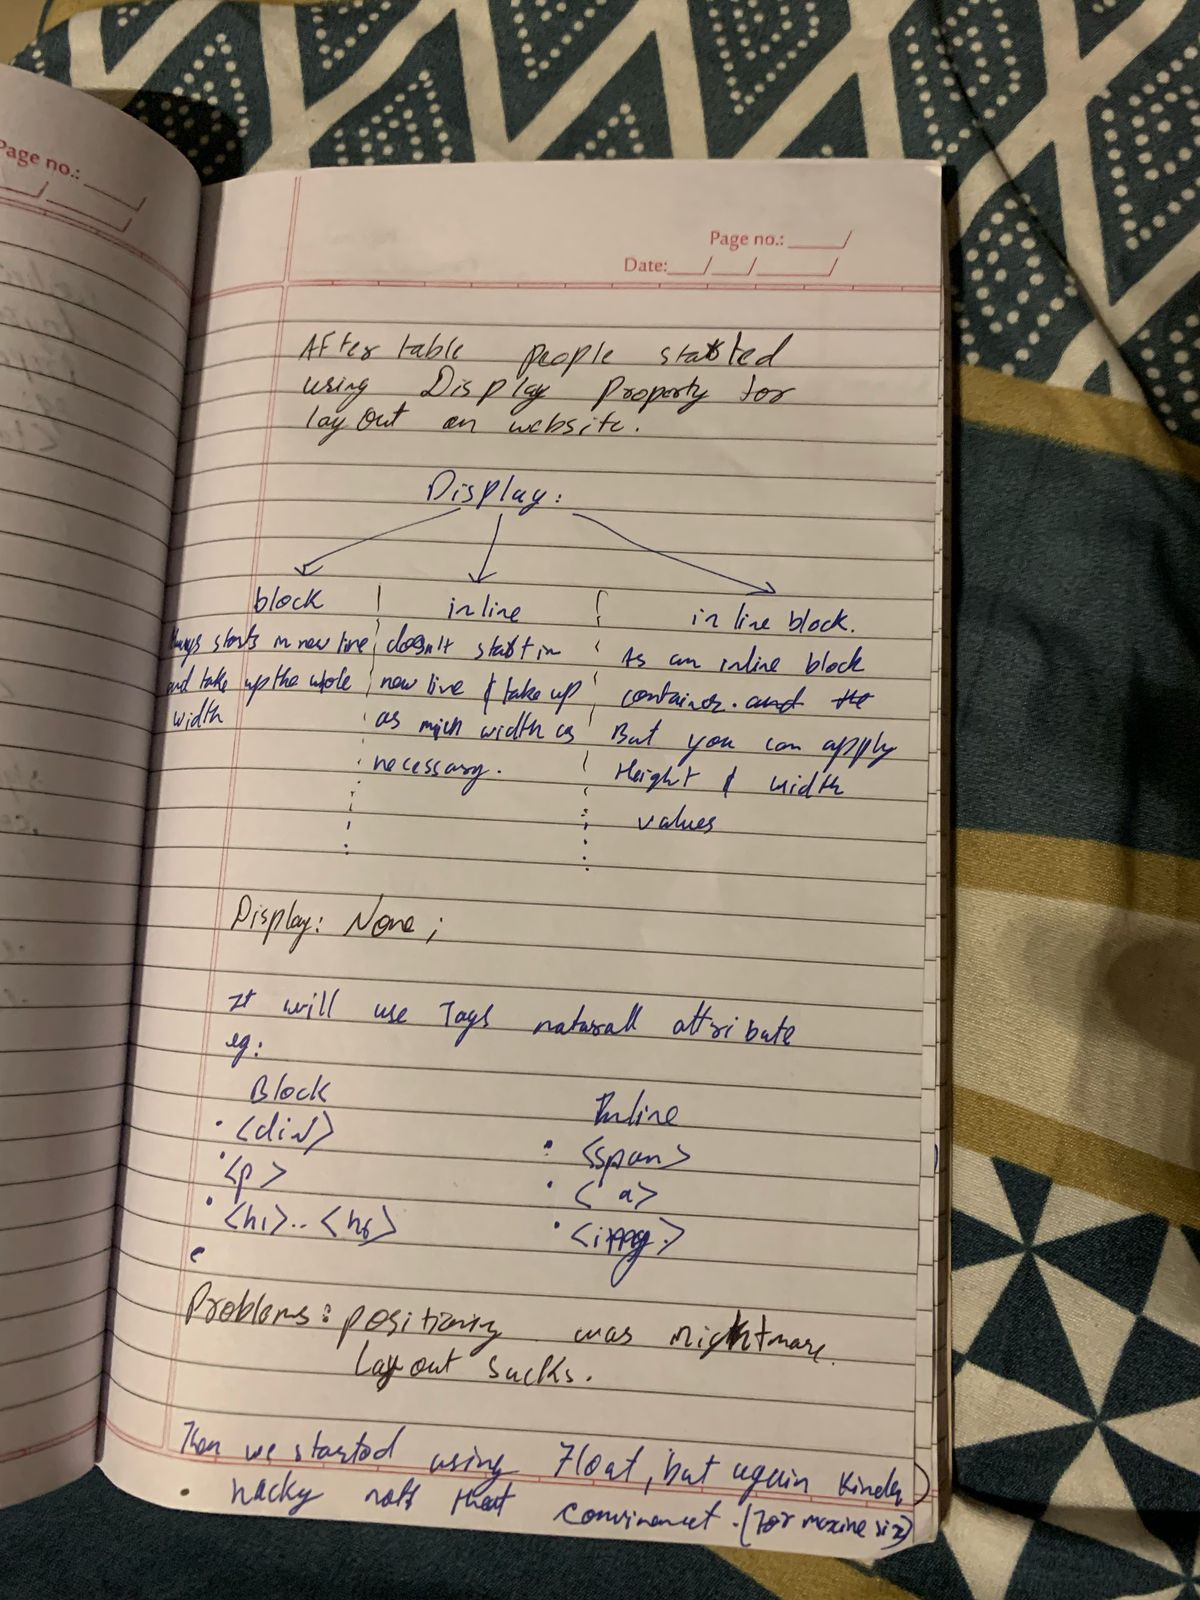 Page no.:
Page no.:
Date:
After table people started
using Display Property for
layout on website.
Display:
block
inline
inline block.
starts in new line
and take up the whole
width
doesn't start in
new line & take up
as much width as
necessary.
As an inline block
container. and the
But you can apply
Height & width
values
Display: None;
It will use Tags naturall attribute
eg:
Block
• <div>
• <p>
• <h1>..<h6>
Inline
• <span>
• <a>
• <img>
Problems: positioning was nightmare.
Layout sucks.
Then we started using Float, but again kinda
• hacky not that (for